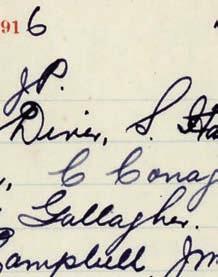 916
J.P.
Diver, S.
C Conag
Gallagher.
Campbell Jm